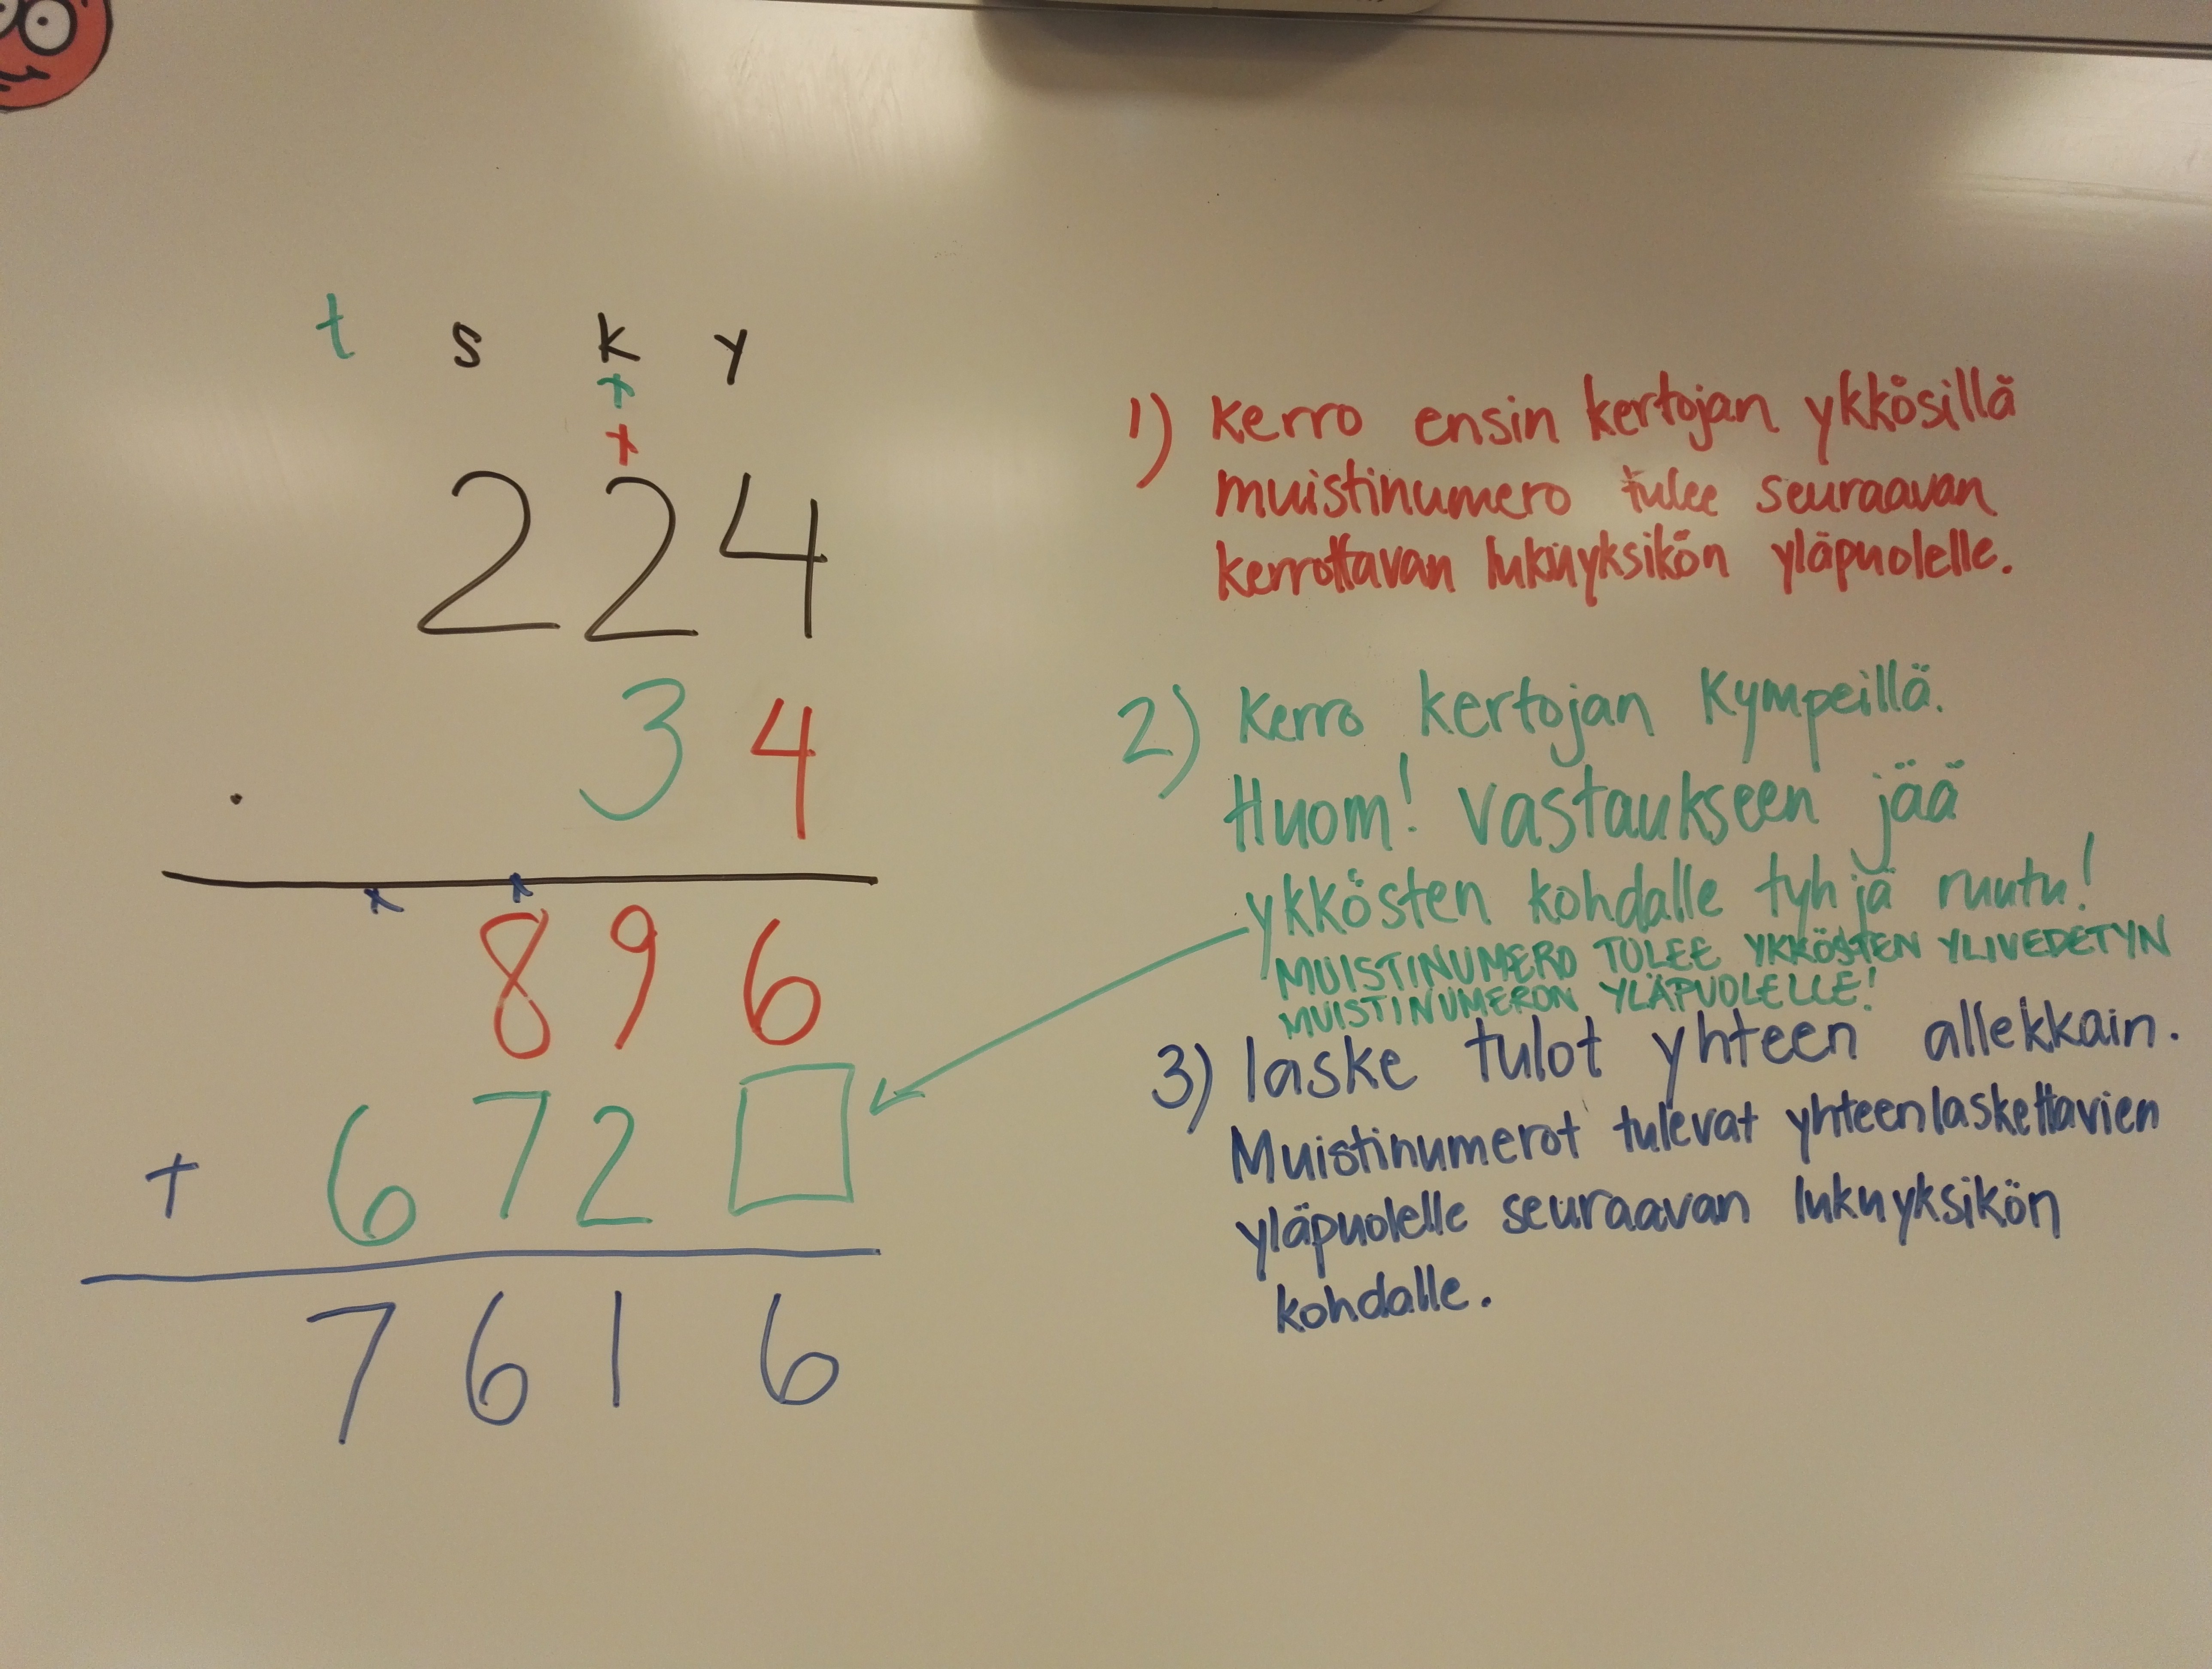 t s k y
224
34
.
896
+ 672
7616
1) Kerro ensin kertojan ykkösillä
muistinumero tulee seuraavan
kerrottavan lukuyksikön yläpuolelle.
2) Kerro kertojan Kympeillä.
Huom! Vastaukseen jää
ykkösten kohdalle tyhjä ruutu!
MUISTINUMERO TULEE YKKÖSTEN YLIVEDETYN
MUISTINUMERON YLÄPUOLELLE!
3) laske tulot yhteen allekkain.
Muistinumerot tulevat yhteenlaskettavien
yläpuolelle seuraavan lukuyksikön
kohdalle.